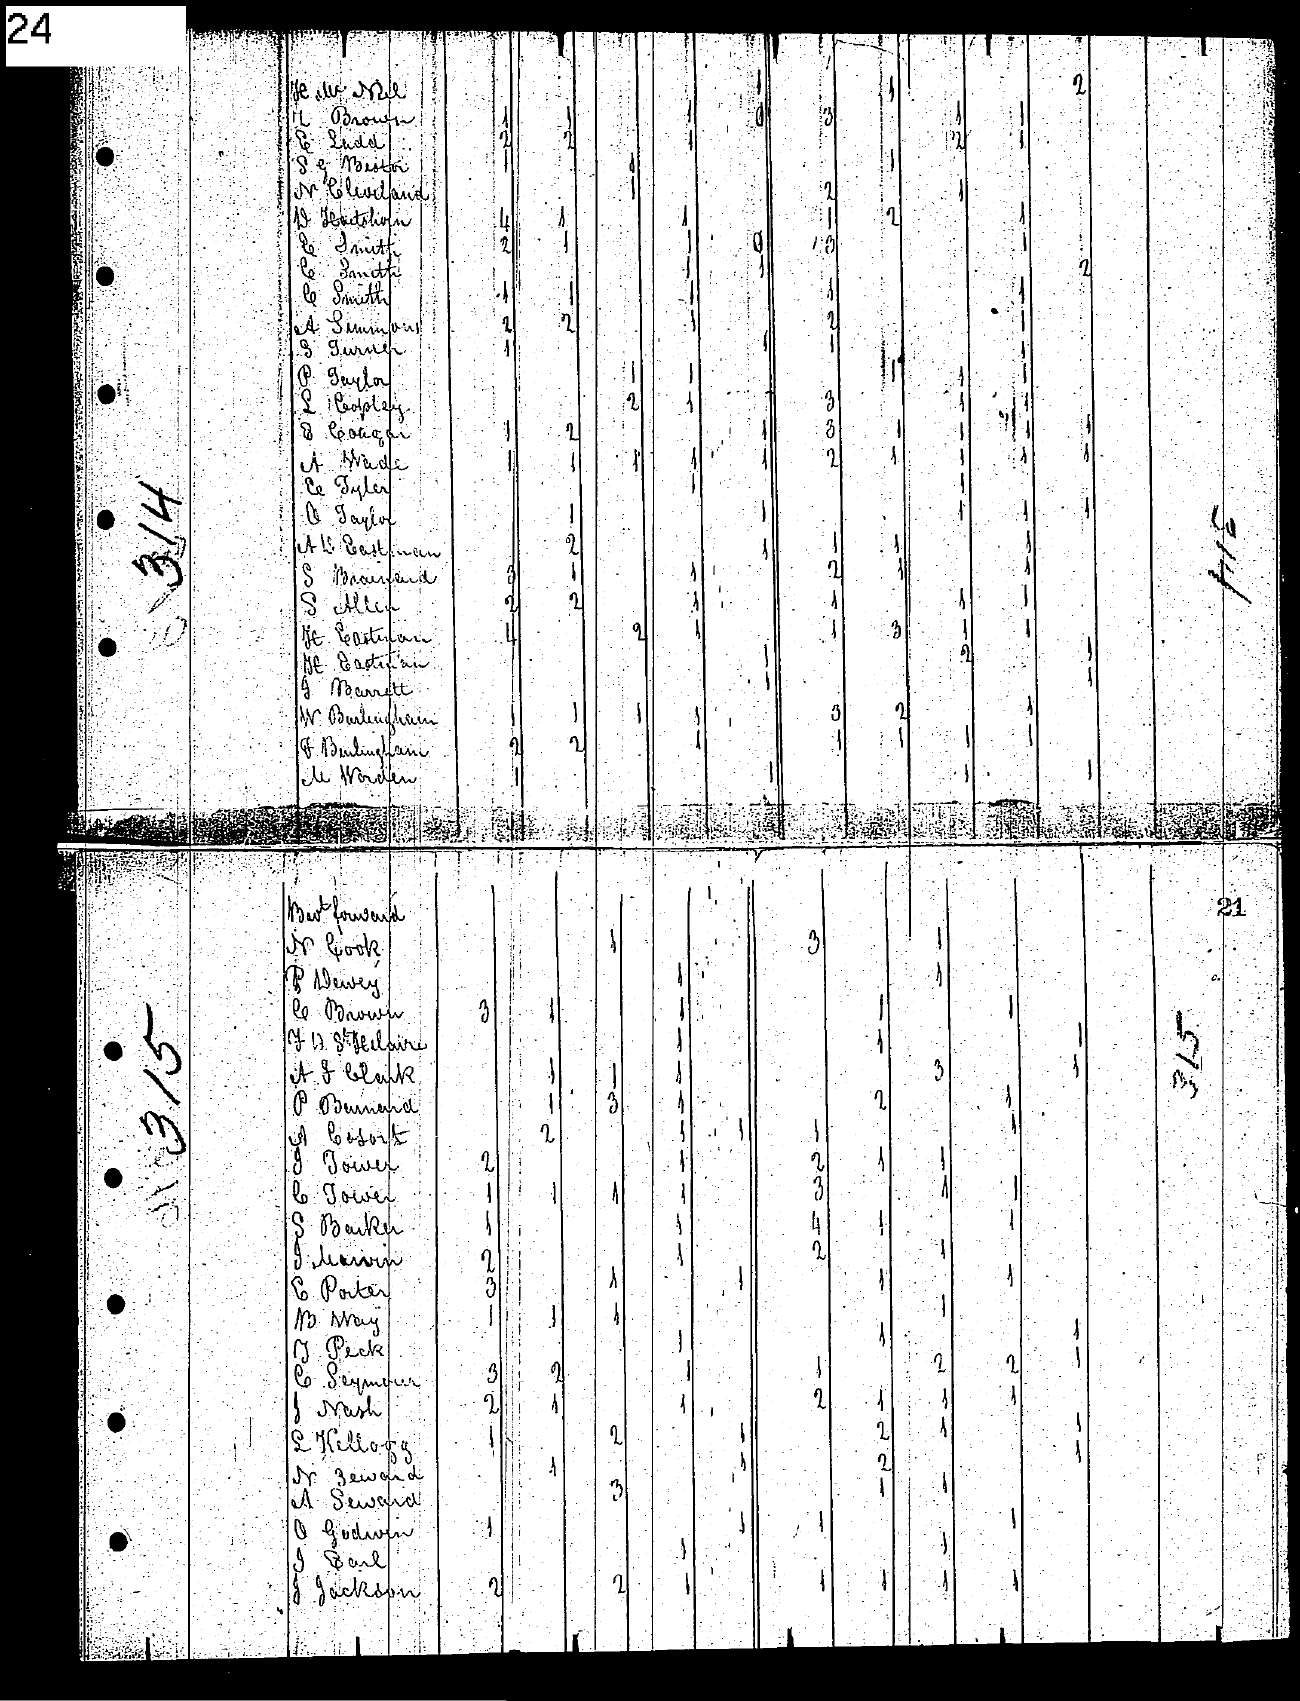 24
H. Mc Nel 1 1 2
Brown 1 1 1 0 3 1 1
E Ladd 2 2 1 2 1
S G Bestor 1 1 1
N Cleveland 1 2 1
D Hartshorn 4 1 1 1 2 1
E Smith 2 1 1 0 3 1
C Smith 1 1 2
C Smith 1 1 1 1 1
A Simmons 2 2 1 2 1
S Turner 1 1 1 1
P Taylor 1 1 1 1 1
L Copley 2 1 3 1 1
E 1 2 1 3 1 1 1 1
A Wade 1 1 1 1 1 2 1 1 1 1
Tyler 1 1
O Taylor 1 1 1 1 1
A D Eastman 2 1 1 1 1
S Brainard 3 1 1 2 1 1
S Allen 2 2 1 1 1 1
H Eastman 4 2 1 1 3 1 1
H Eastman 1 2 1
J Barrett 1 1
W Burlingham 1 1 1 1 3 2 1
F Burlingham 2 2 1 1 1 1 1
M Worden 1 1 1 1
314
314
21
Bot forward
N Cook 1 3 1
P Dewey 1 1
C Brown 3 1 1 1 1
F D St Helaire 1 1 1
A F Clark 1 1 1 3 1
P Barnard 1 3 1 2 1
A Cosort 2 1 1 1 1
J Tower 2 1 2 1 1
C Tower 1 1 1 1 3 1 1
S Barker 1 1 4 1 1
J Marvin 2 1 2 1
C Porter 3 1 1 1 1
B Way 1 1 1 1
Peck 1 1 1
C Seymour 3 2 1 1 2 2 1
J Nash 2 1 1 2 1 1 1
L Kellogg 1 2 1 2 1 1
N Seward 1 1 2 1
A Seward 3 1 1
O Godwin 1 1 1 1
J Earl 1 1
J Jackson 2 2 1 1 1 1 1
315
315